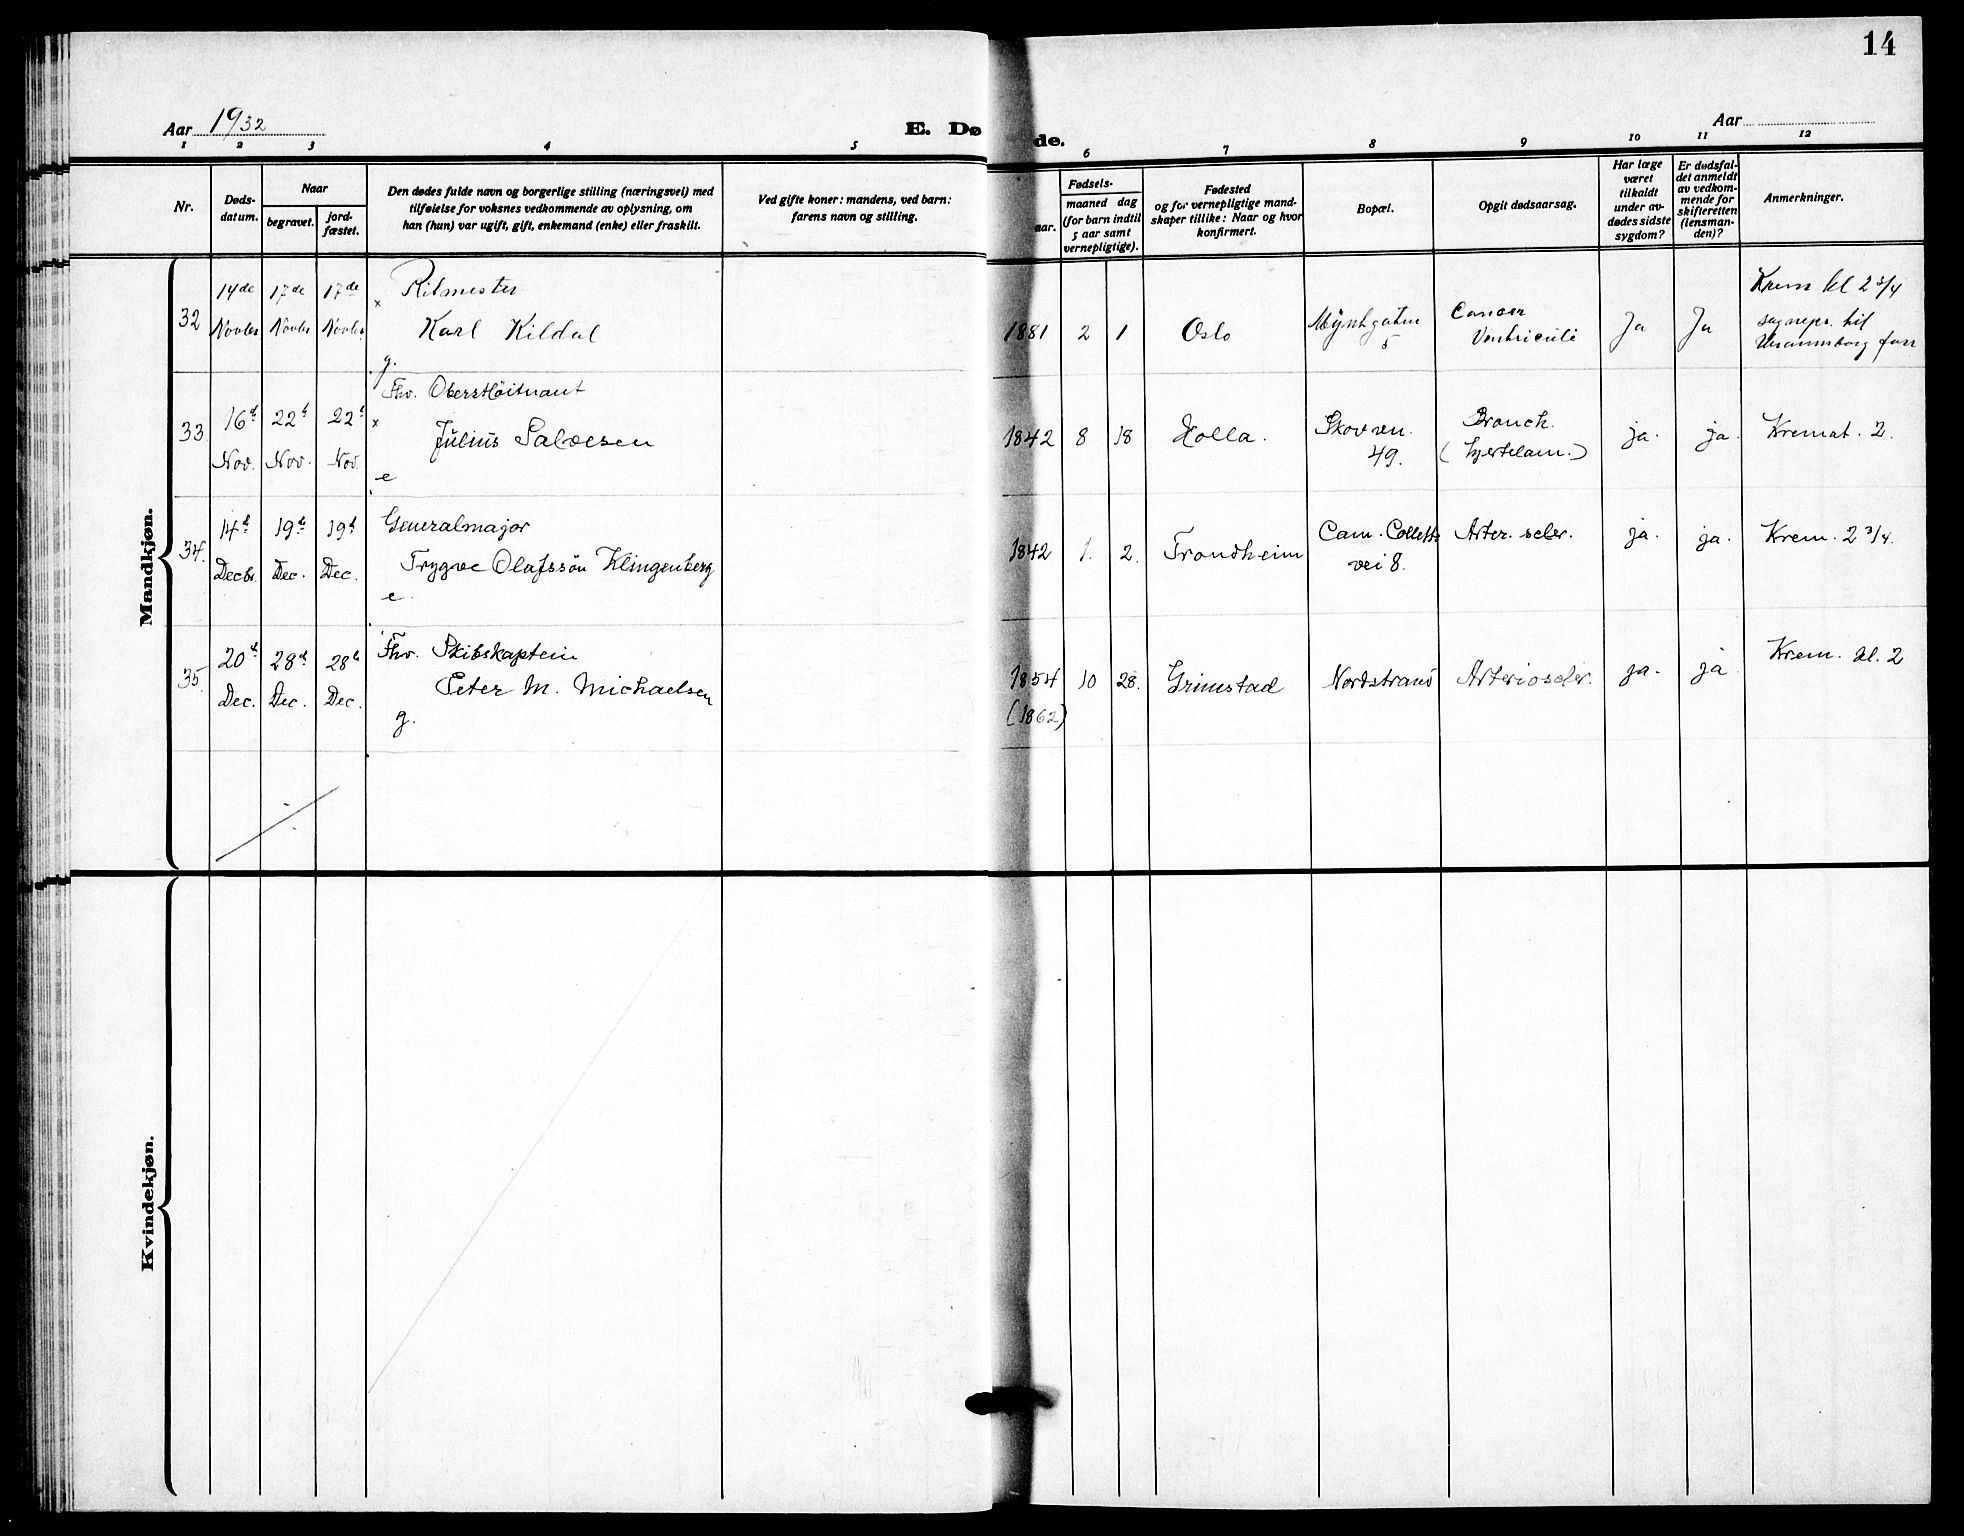 14
Aar 1932
E. Dø
de.
Aar
1 2 3 4 5 6 7 8 9 10 11 12
Nr.
Døds-
datum.
Naar
begravet.
jord-
fæstet.
Den dødes fulde navn og borgerlige stilling (næringsvei) med
tilføielse for voksnes vedkommende av oplysning, om
han (hun) var ugift, gift, enkemand (enke) eller fraskilt.
Ved gifte koner: mandens, ved barn:
farens navn og stilling.
Fødsels-
aar.
maaned dag
(for barn indtil
5 aar samt
vernepligtige).
Fødested
og for vernepligtige mand-
skaper tillike: Naar og hvor
konfirmert.
Bopæl.
Opgit dødsaarsag.
Har læge
været
tilkaldt
under av-
dødes sidste
sygdom?
Er dødsfal-
det anmeldt
av vedkom-
mende for
skifteretten
(lensman-
den)?
Anmerkninger.
Mandkjøn.
32
14de
Novbr
17de
Novbr
17de
Novbr.
x Ritmester
Karl Kildal
g.
1881 2 1
Oslo
Myntgaten
5
Cancer
Ventriculi
Ja
Ja
Krem kl 2 3/4
sognepr. til
Uranienborg forr
33
16d
Nov.
22d
Nov.
22d
Nov.
Fhv. Oberstløitnant
x Julius Salvesen
e
1842 8 18
Holla.
Skovvn.
49.
Bronch.
(hjertelam.)
ja.
ja.
Kremat. 2.
34.
14d
Decbr.
19d
Dec.
19d
Dec.
Generalmajor
Trygve Olafssön Klingenberg
e.
1842 1. 2.
Trondheim
Cam. Colletts
vei 8.
Arter. scler.
ja.
ja.
Krem. 2 3/4.
35.
20d
Dec.
28d
Dec.
28d
Dec.
Fhv. Skibskaptein
Peter M. Michaelsen
g.
1854 10 28.
(1862)
Grimstad
Nordstrand
Arterioscler.
ja.
ja
Krem. kl. 2
Kvindekjøn.